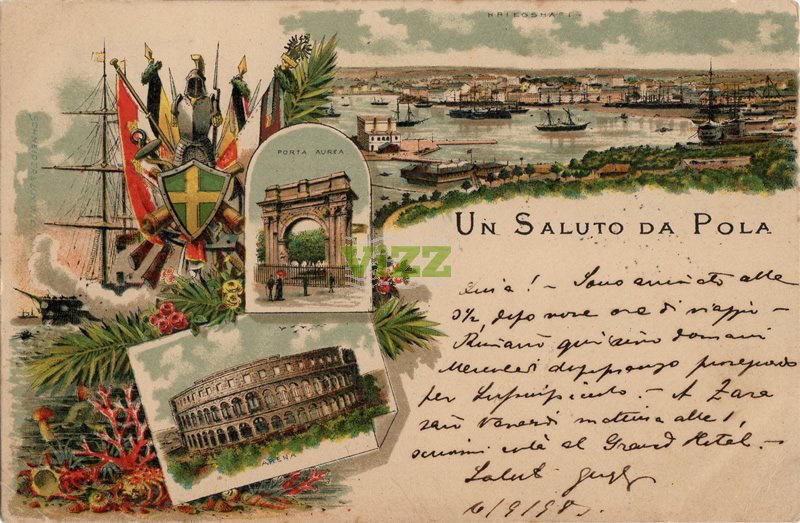 KRIEGSHAFEN
PORTA AUREA
UN SALUTO DA POLA
vizz
ARENA
! - Sono arrivato alle
3½ dopo nove ore di viaggio -
Rimarrò qui sino domani
Mercoledì proseguendo
per - A Zara
sarò Venerdì mattina alle
scrivimi colà al Grand Hotel. -
Saluti
6/9/98